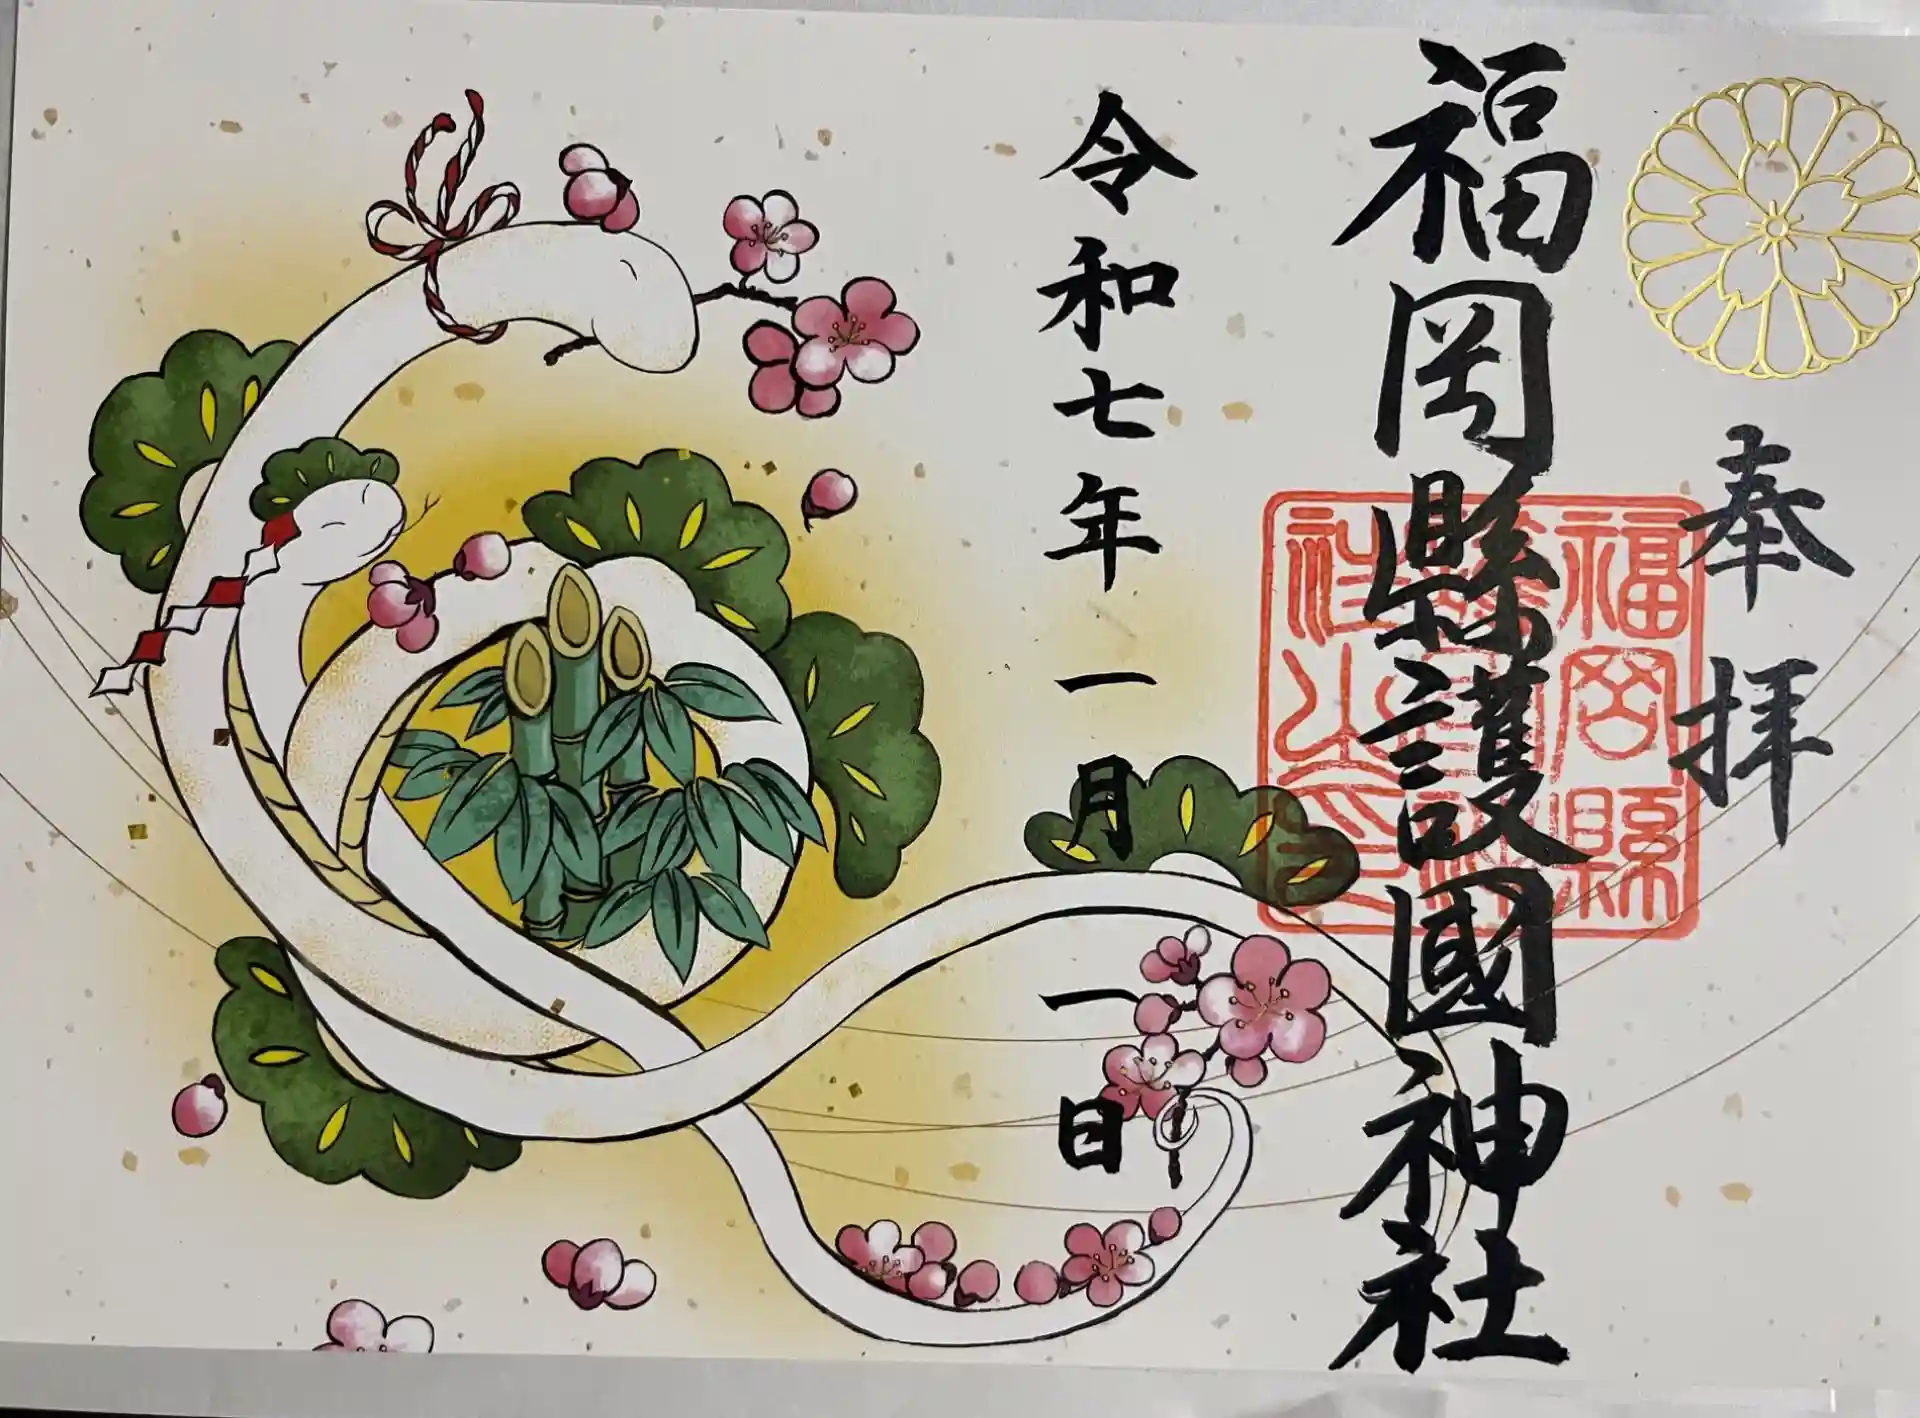 奉拝
福岡縣護國神社
令和七年一月一日
福岡縣